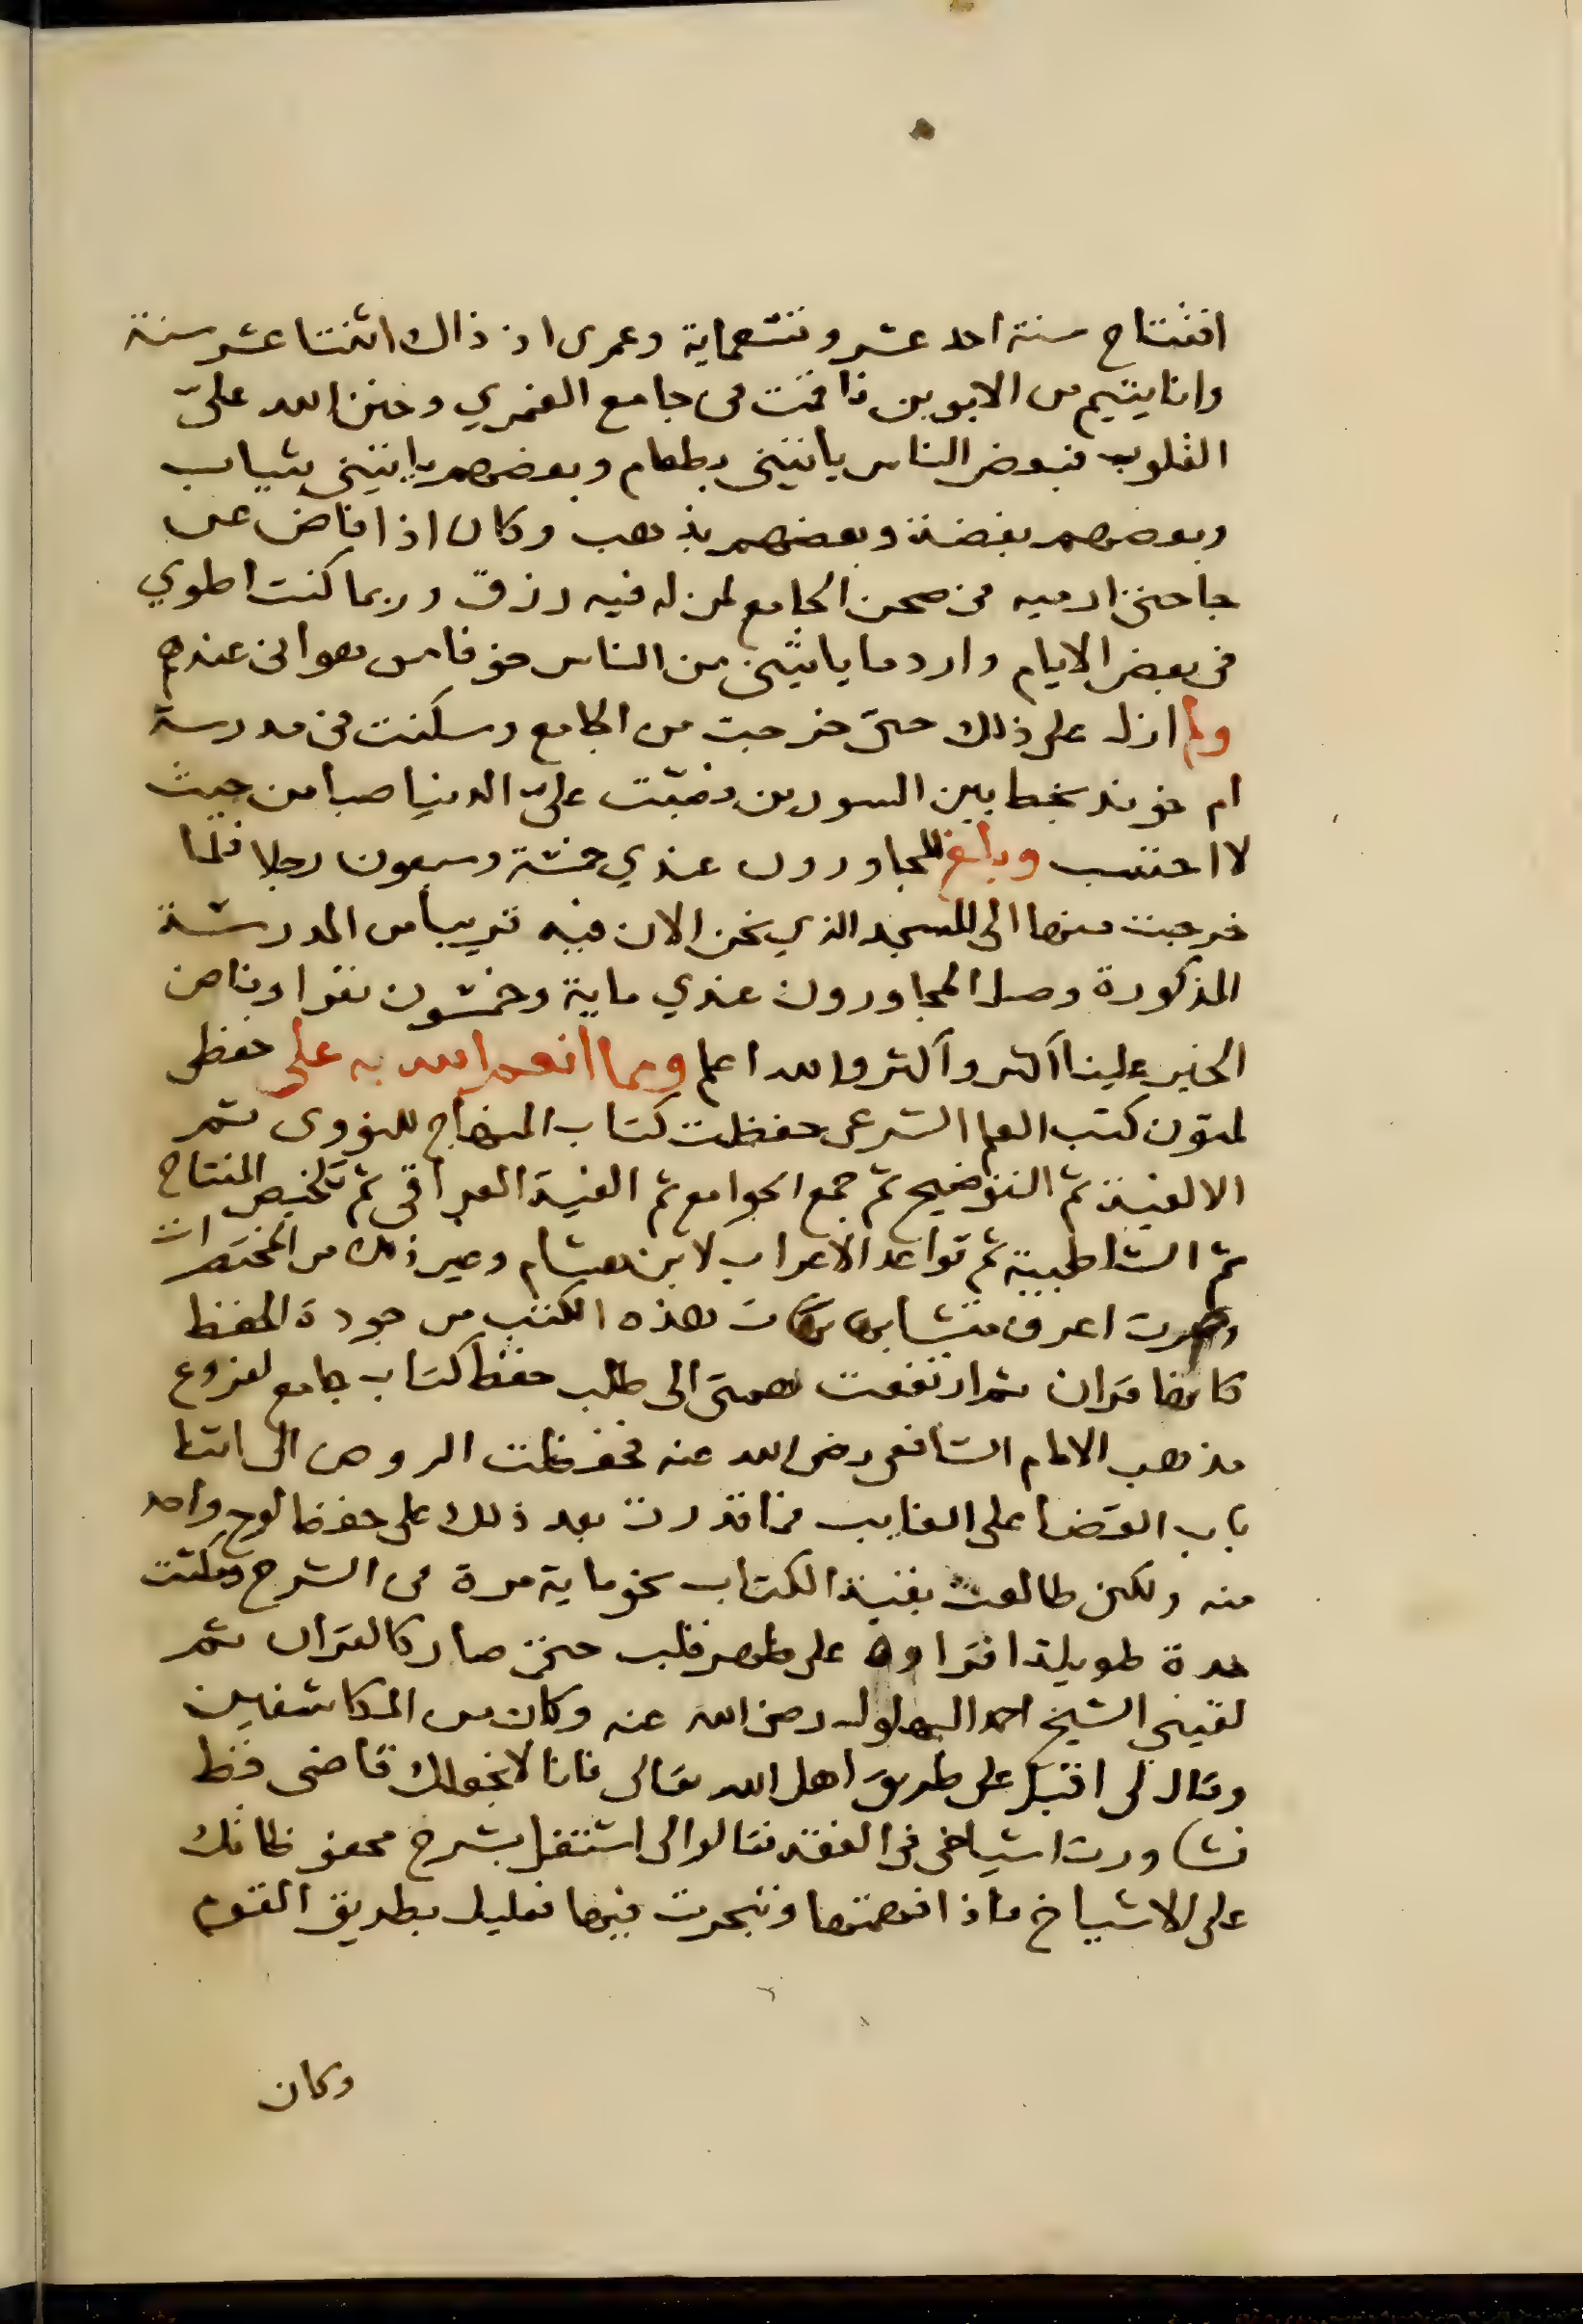 افتتاح سنة احد عشر وتسعماية وعمرى اذ ذاك اثنتا عشر سنة
وانا يتيم من الابوين فاقمت فى جامع الغمري وحنن الله علىّ
القلوب فبعض الناس ياتينى بطعام وبعضهم ياتينى بثياب
وبعضهم بفضة وبعضهم بذهب وكان اذا فاض عن
حاجتى ارميه فى صحن الجامع لمن له فيه رزق وربما كنت اطوي
فى بعض الايام وارد ما ياتينى من الناس خوفا من هوانى عندهم
ولم ازل على ذلك حتى خرجت من الجامع وسكنت فى مدرسة
ام خوند بخط بين السورين فصبت علىّ الدنيا صبا من حيث
لا احتسب وبلغ المجاورون عندي خمسة وسبعون رجلا فلما
خرجت منها الى المسجد الذي نحن الان فيه قريبا من المدرسة
المذكورة وصل المجاورون عندي ماية وخمسون نفرا وفاض
الخير علينا اكثر واكثر والله اعلم ومما انعم الله به على حفظى
لمتون كتب العلم الشرعى حفظت كتاب المنهاج للنووى ثم
الالفية ثم التوضيح ثم جمع الجوامع ثم الفية العراقى ثم تلخيص المفتاح
ثم الشاطبية ثم قواعد الاعراب لابن هشام وغير ذلك من المختصرات
وصرت اعرف متشابهات هذه الكتب من جودة الحفظ
كانها قران ثم ارتفعت همتى الى طلب حفظ كتاب جامع لفروع
مذهب الامام الشافعى رضى الله عنه فحفظت الروض الى اثنا
باب القضا على الغايب فما قدرت بعد ذلك على حفظ لوح واحد
منه ولكن طالعت بقية الكتاب نحو ماية مرة فى الشرح ومكثت
مدة طويلة اقراوه على ظهر قلب حتى صار كالقران ثم
لقينى الشيخ احمد البهلول رضى الله عنه وكان من المكاشفين
وقال لى اقبل على طريق اهل الله تعالى فانا لا نجعلك قاضى قط
فشاورت اشياخى فى الفقه فقالوا لى اشتغل بشرح محفوظاتك
على الاشياخ فاذا فهمتها وتبحرت فيها فعليك بطريق القوم
وكان